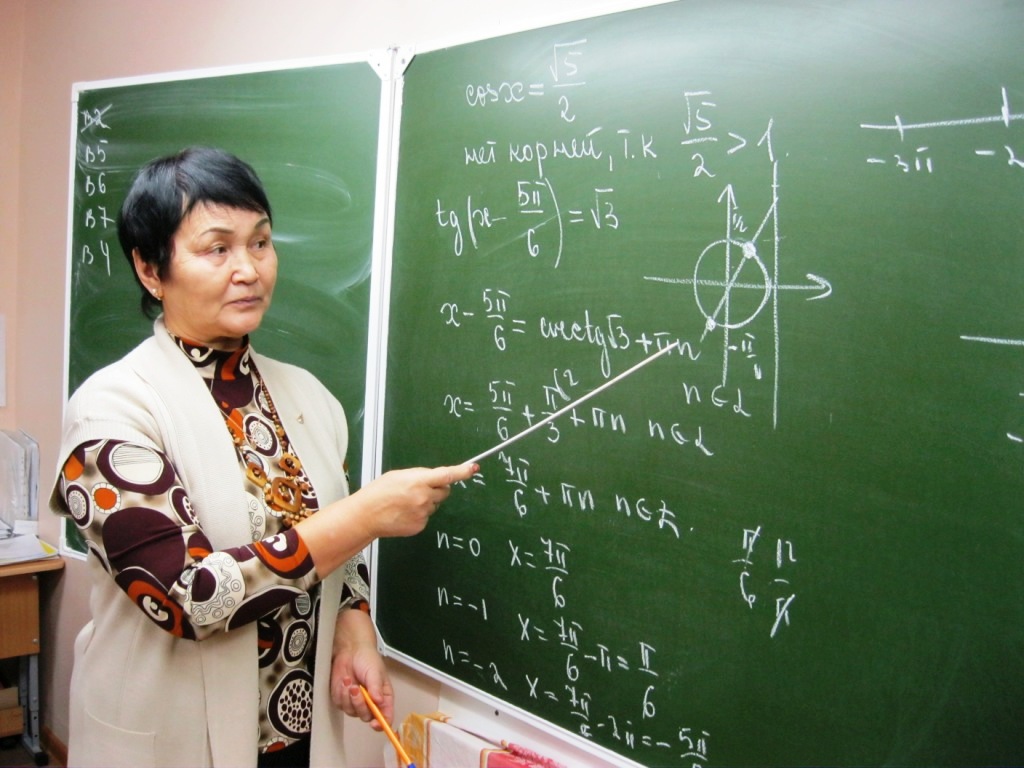 B2
B5
B6
B7
B4
cosx = √5/2
нет корней, т.к √5/2 > 1.
tg(x - 5π/6) = √3
x - 5π/6 = arctg√3 + πn
n ∈ Z
x = 5π/6 + π/3 (2 + πn n ∈ Z
x = 7π/6 + πn n ∈ Z.
n = 0 x = 7π/6
n = -1 x = 7π/6 - π = π/6
n = -2 x = 7π/6 - 2π = - 5π/
-3π -2
π/6 12/π